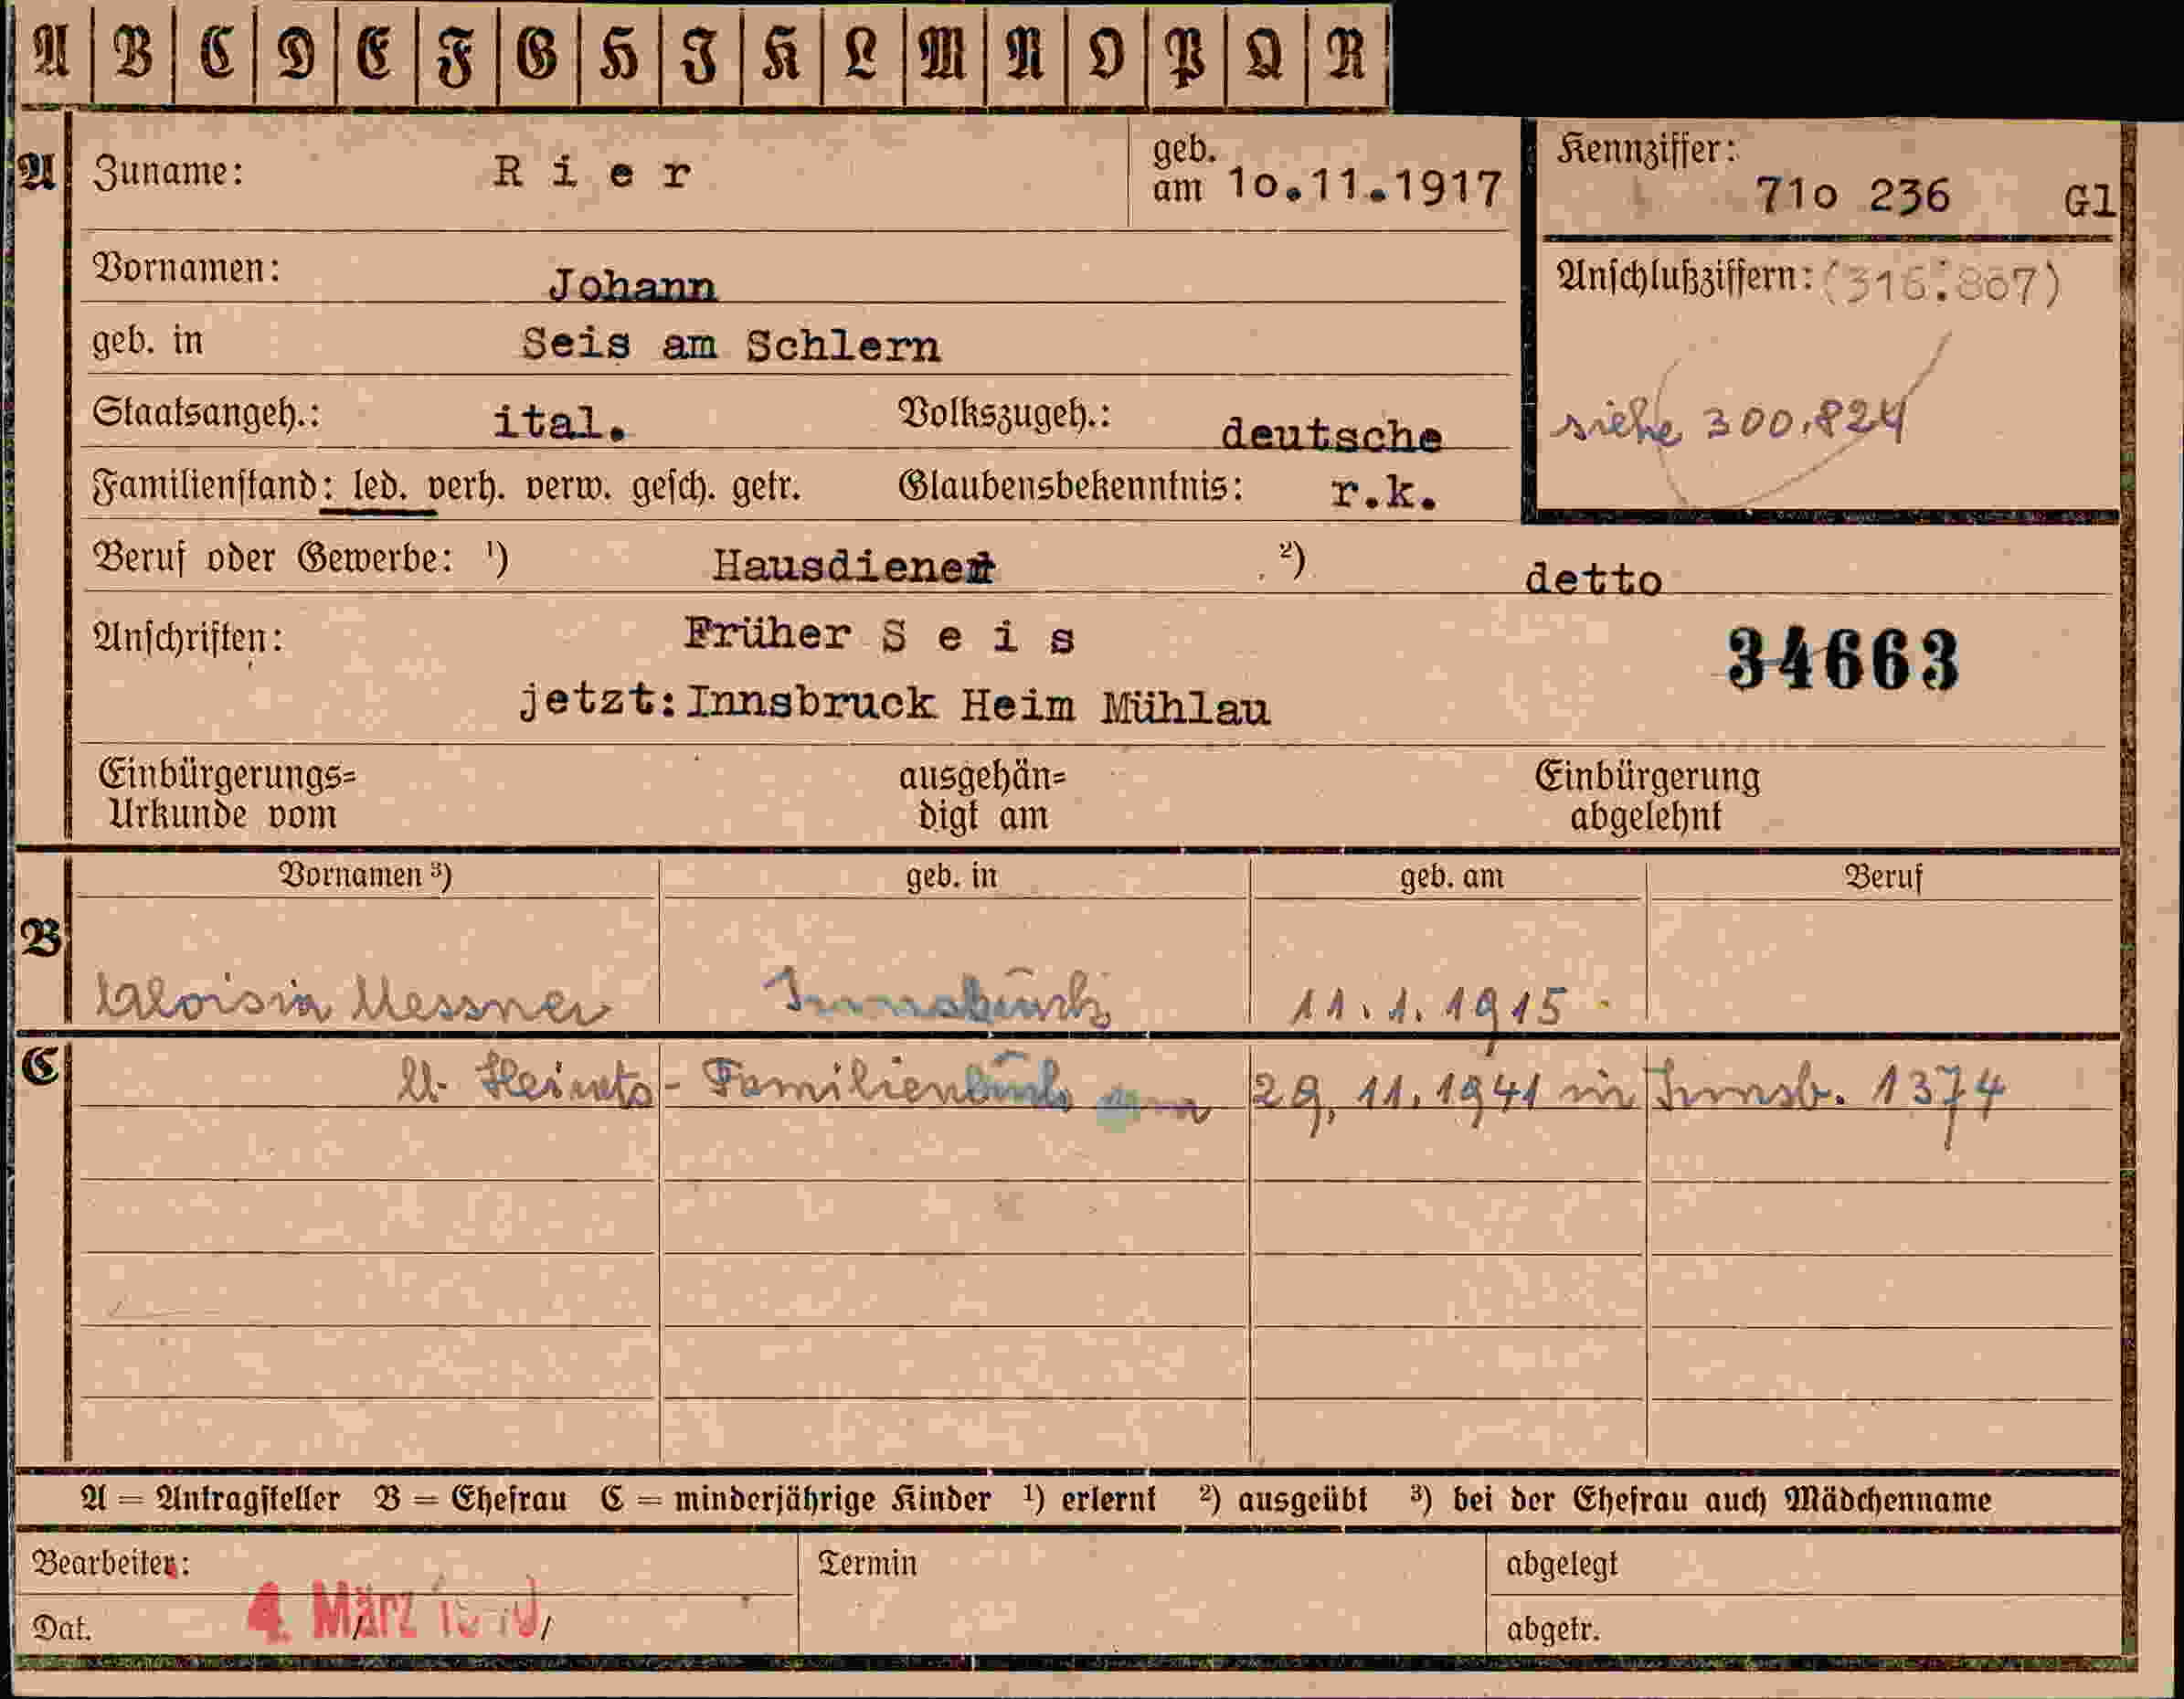 A B C D E F G H I K L M N O P Q R
A Zuname: R i e r geb. am 10.11.1917
Kennziffer: 71o 236 Gl
Vornamen: Johann
Anschlußziffern: (316.807)
geb. in Seis am Schlern
Staatsangeh.: ital. Volkszugeh.: deutsche
siehe 300.824
Familienstand: led. verh. verw. gesch. getr. Glaubensbekenntnis: r.k.
Beruf oder Gewerbe: ¹) Hausdiener ²) detto
Anschriften: Früher S e i s
34663
jetzt: Innsbruck Heim Mühlau
Einbürgerungs= ausgehän= Einbürgerung
Urkunde vom digt am abgelehnt
Vornamen ³) geb. in geb. am Beruf
B
Aloisia Messner Innsbruck 11.1.1915
C
lt. Heirats-Familienbuch am 29.11.1941 in Innsb. 1374
A = Antragsteller B = Ehefrau C = minderjährige Kinder ¹) erlernt ²) ausgeübt ³) bei der Ehefrau auch Mädchenname
Bearbeiter: Termin abgelegt
Dat. 4. März abgetr.